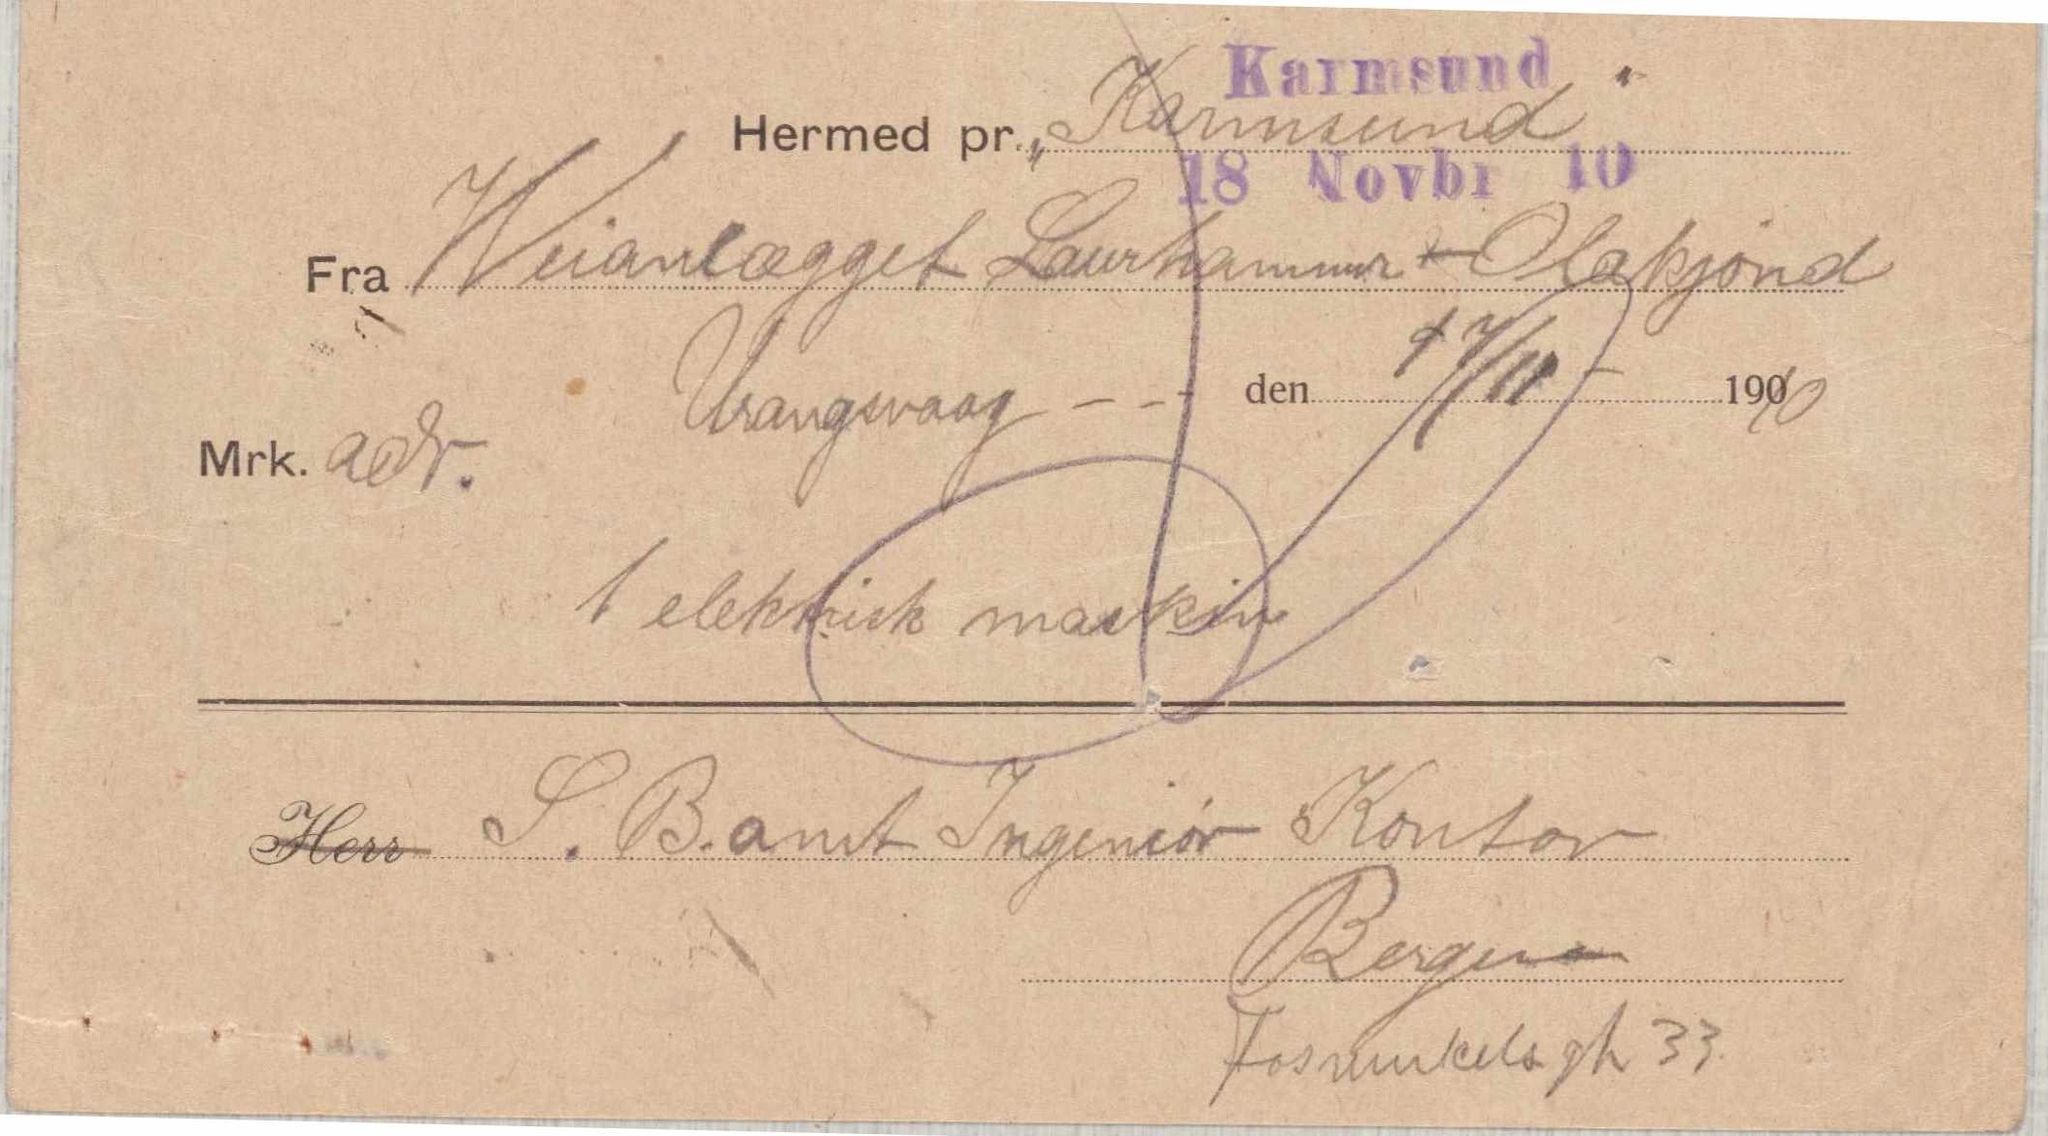 Karmsund
Hermed pr. „Karmsund"
18 Novbr 10
Fra Weianlægget Laurhammer - Olakjønd
Urangsvaag - - - den 17/11 - 1910
Mrk. adr.
1 elektrisk maskin
Herr S. B. amt Ingeniør Kontor
Bergen
33